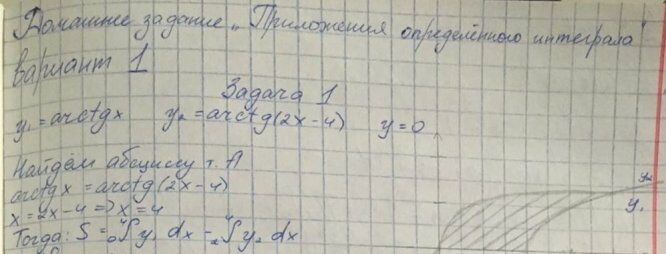 Домашнее задание „Приложения определённого интеграла"
Вариант 1
Задача 1
y₁ = arctgx y₂ = arctg(2x-4) y = 0
Найдём абсциссу т. А
arctgx = arctg(2x-4)
x = 2x-4 => x = 4
Тогда: S = ₀⁴∫y₁ dx - ₂⁴∫y₂ dx
y₂
y₁